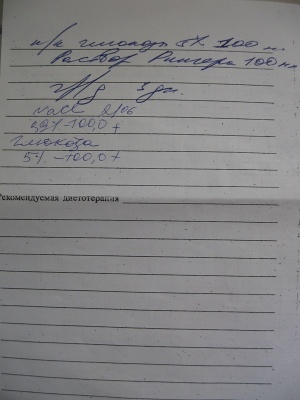 п/к глюкозы 5% 100 мл
Раствор Рингера 100 мл
3 дн.
NaCl в/в
0,9% -100,0 +
глюкоза
5% -100,0 +
Рекомендуемая диетотерапия